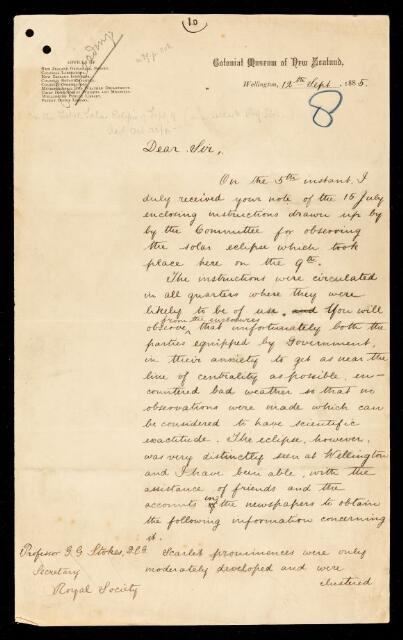 10
Reading
OFFICES OF
NEW ZEALAND GEOLOGICAL SURVEY
COLONIAL LABORATORY
Colonial Museum of New Zealand,
Wellington, 12th Sept. 1885.
8
Dear Sir,
On the 5th instant, I
duly received your note of the 15 July
enclosing instructions drawn up by
by the Committee for observing
the solar eclipse which took
place here on the 9th.
The instructions were circulated
in all quarters where they were
likely to be of use. and You will
from the enclosures
observe that unfortunately both the
parties equipped by Government,
in their anxiety to get as near the
line of centrality as possible, en-
countered bad weather so that no
observations were made which can
be considered to have scientific
exactitude. The eclipse, however,
was very distinctly seen at Wellington
and I have been able, with the
assistance of friends and the
accounts in the newspapers to obtain
the following information concerning
it.
Scarlet prominences were only
moderately developed and were
clustered
Professor G. G. Stokes, D.C.L.
Secretary
Royal Society